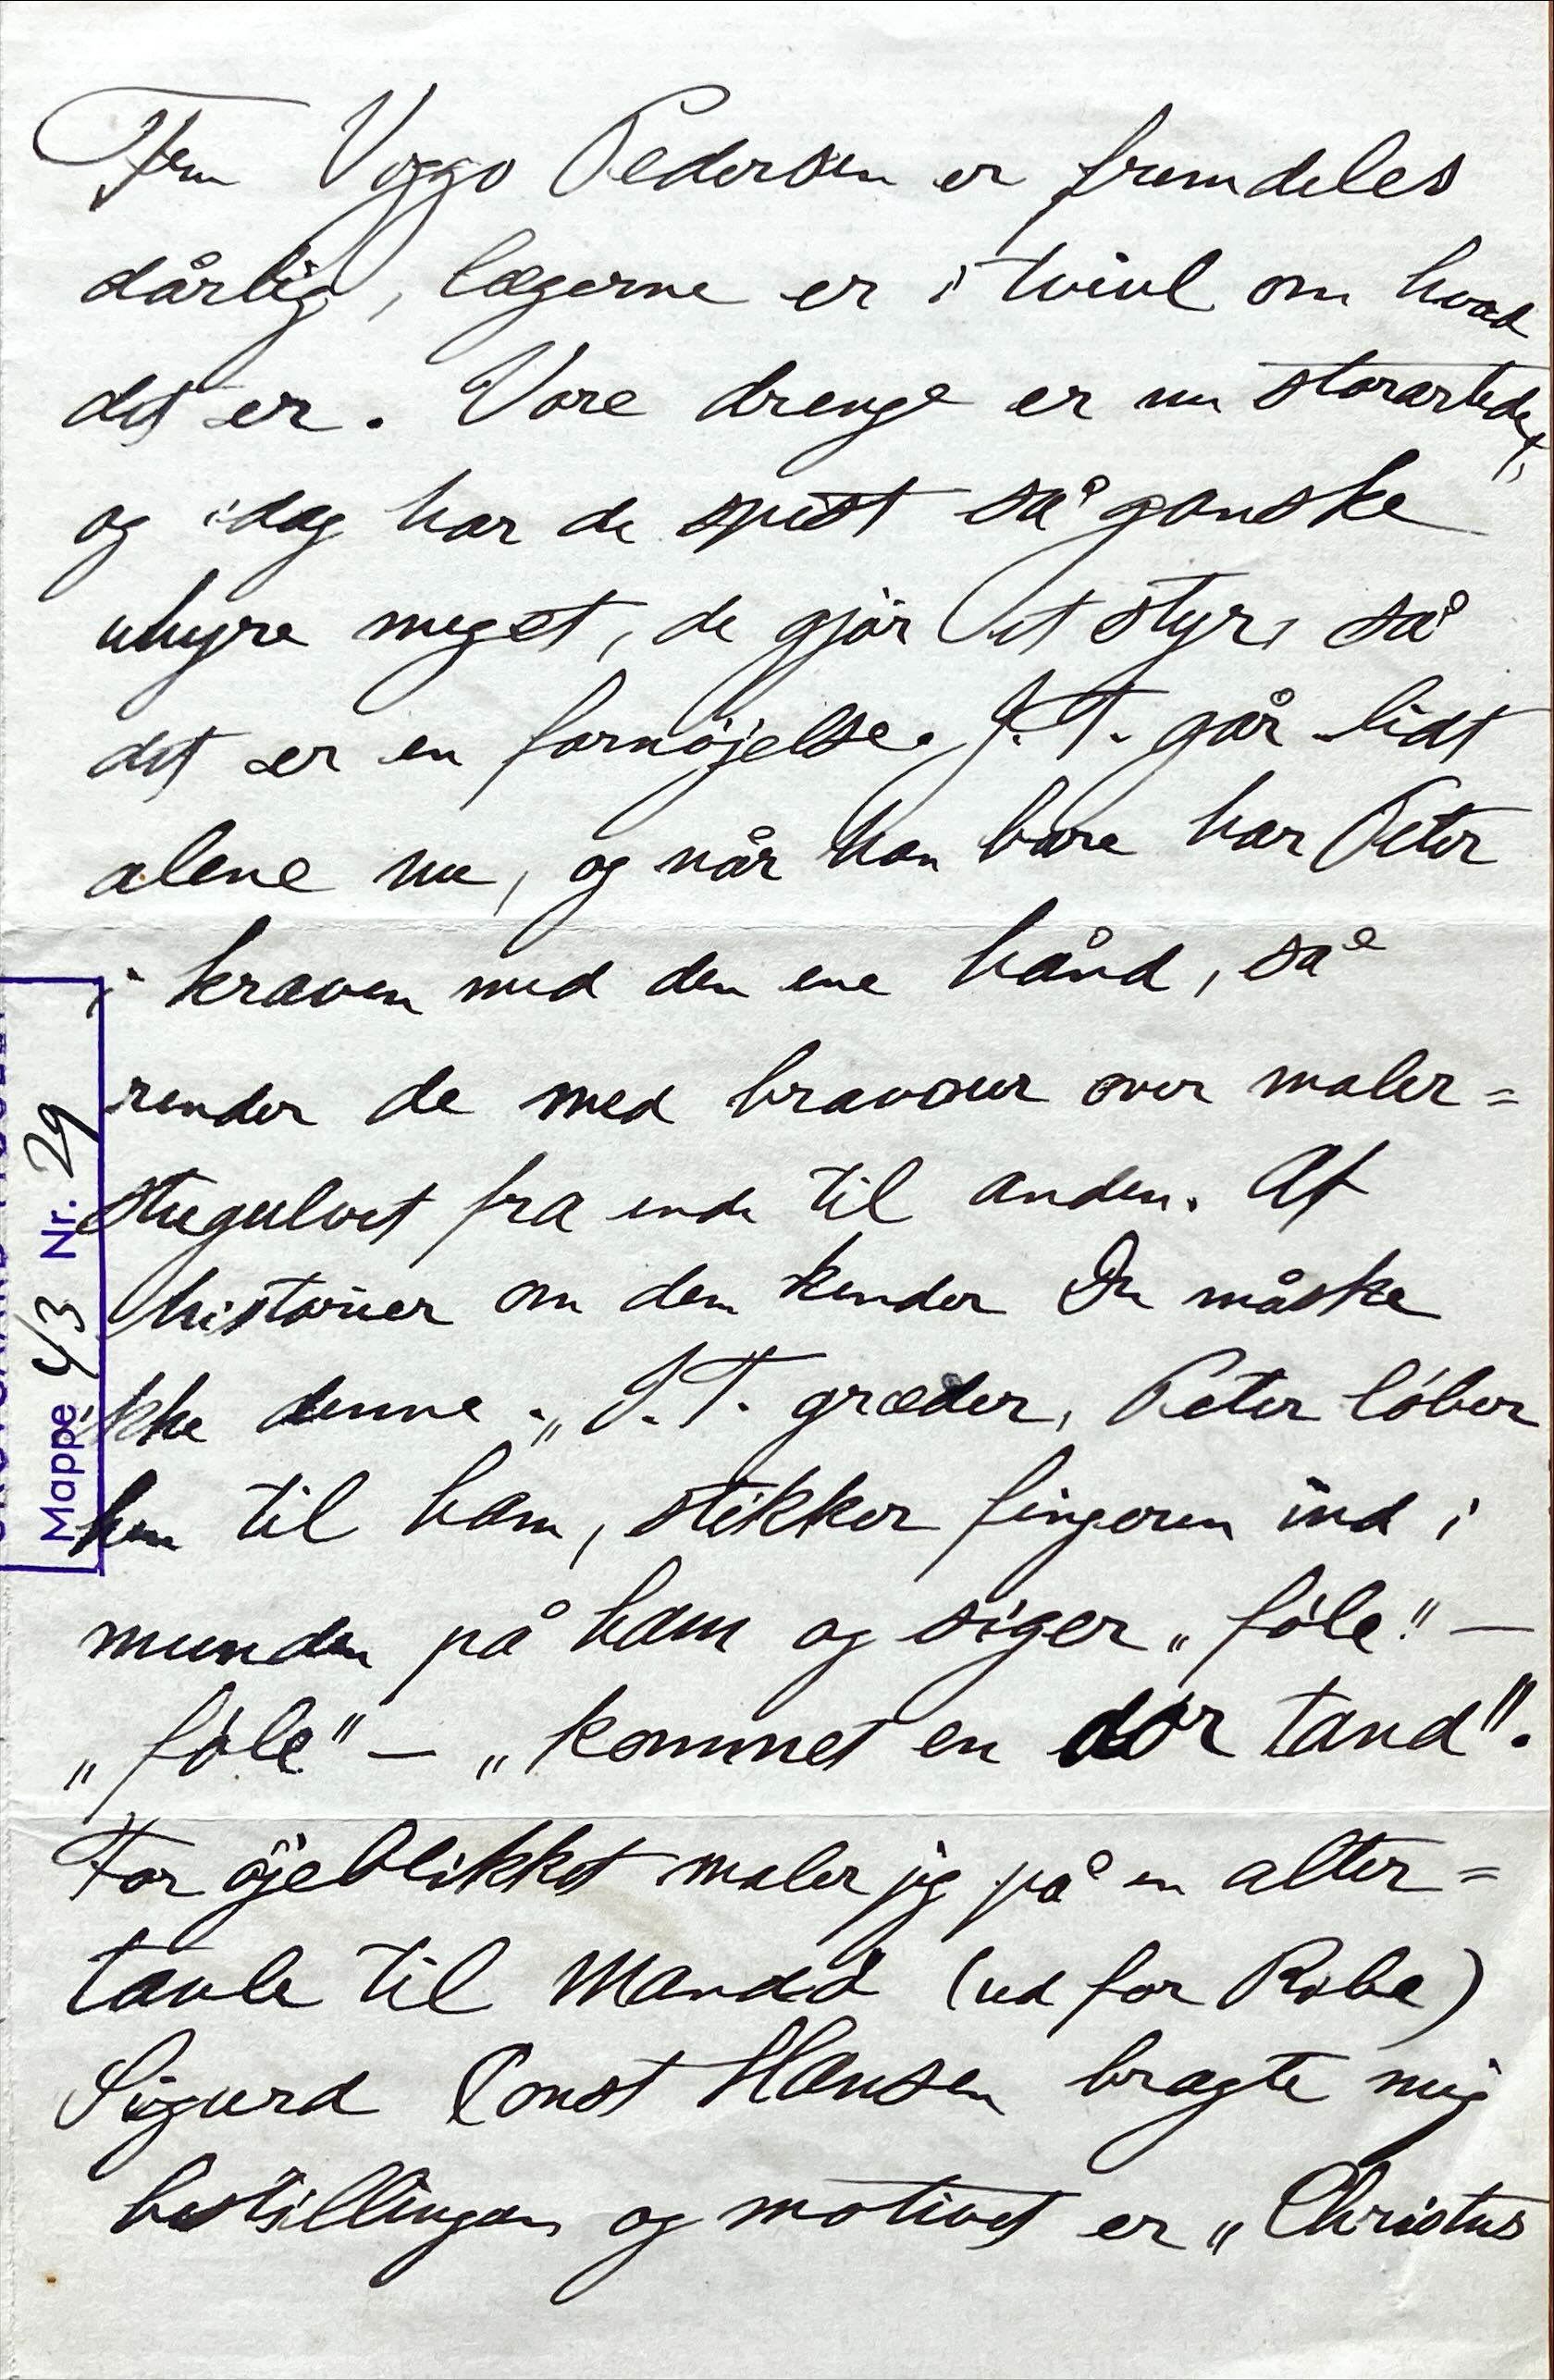 Fru Viggo Pedersen er fremdeles
dårlig, lægerne er i tvivl om hvad
det er. Vore drenge er nu storartede,
og idag har de spist så ganske
uhyre meget, de gjör et styr, så
det er en fornöjelse. J.T. går lidt
alene nu, og når han bare har Peter
i kraven med den ene hånd, så
render de med bravour over maler=
stuegulvet fra ende til anden. Af
historier om dem kender Du måske
ikke denne: „J.T. græder, Peter löber
hen til ham, stikker fingeren ind i
munden på ham og siger „föle" —
„föle" — „kommet en dör tand".
For öjeblikket maler jeg på en alter=
tavle til Mandö (ud for Ribe)
Sigurd Const Hansen bragte mig
bestillingen og motivet er „Christus
Mappe 43 Nr. 29